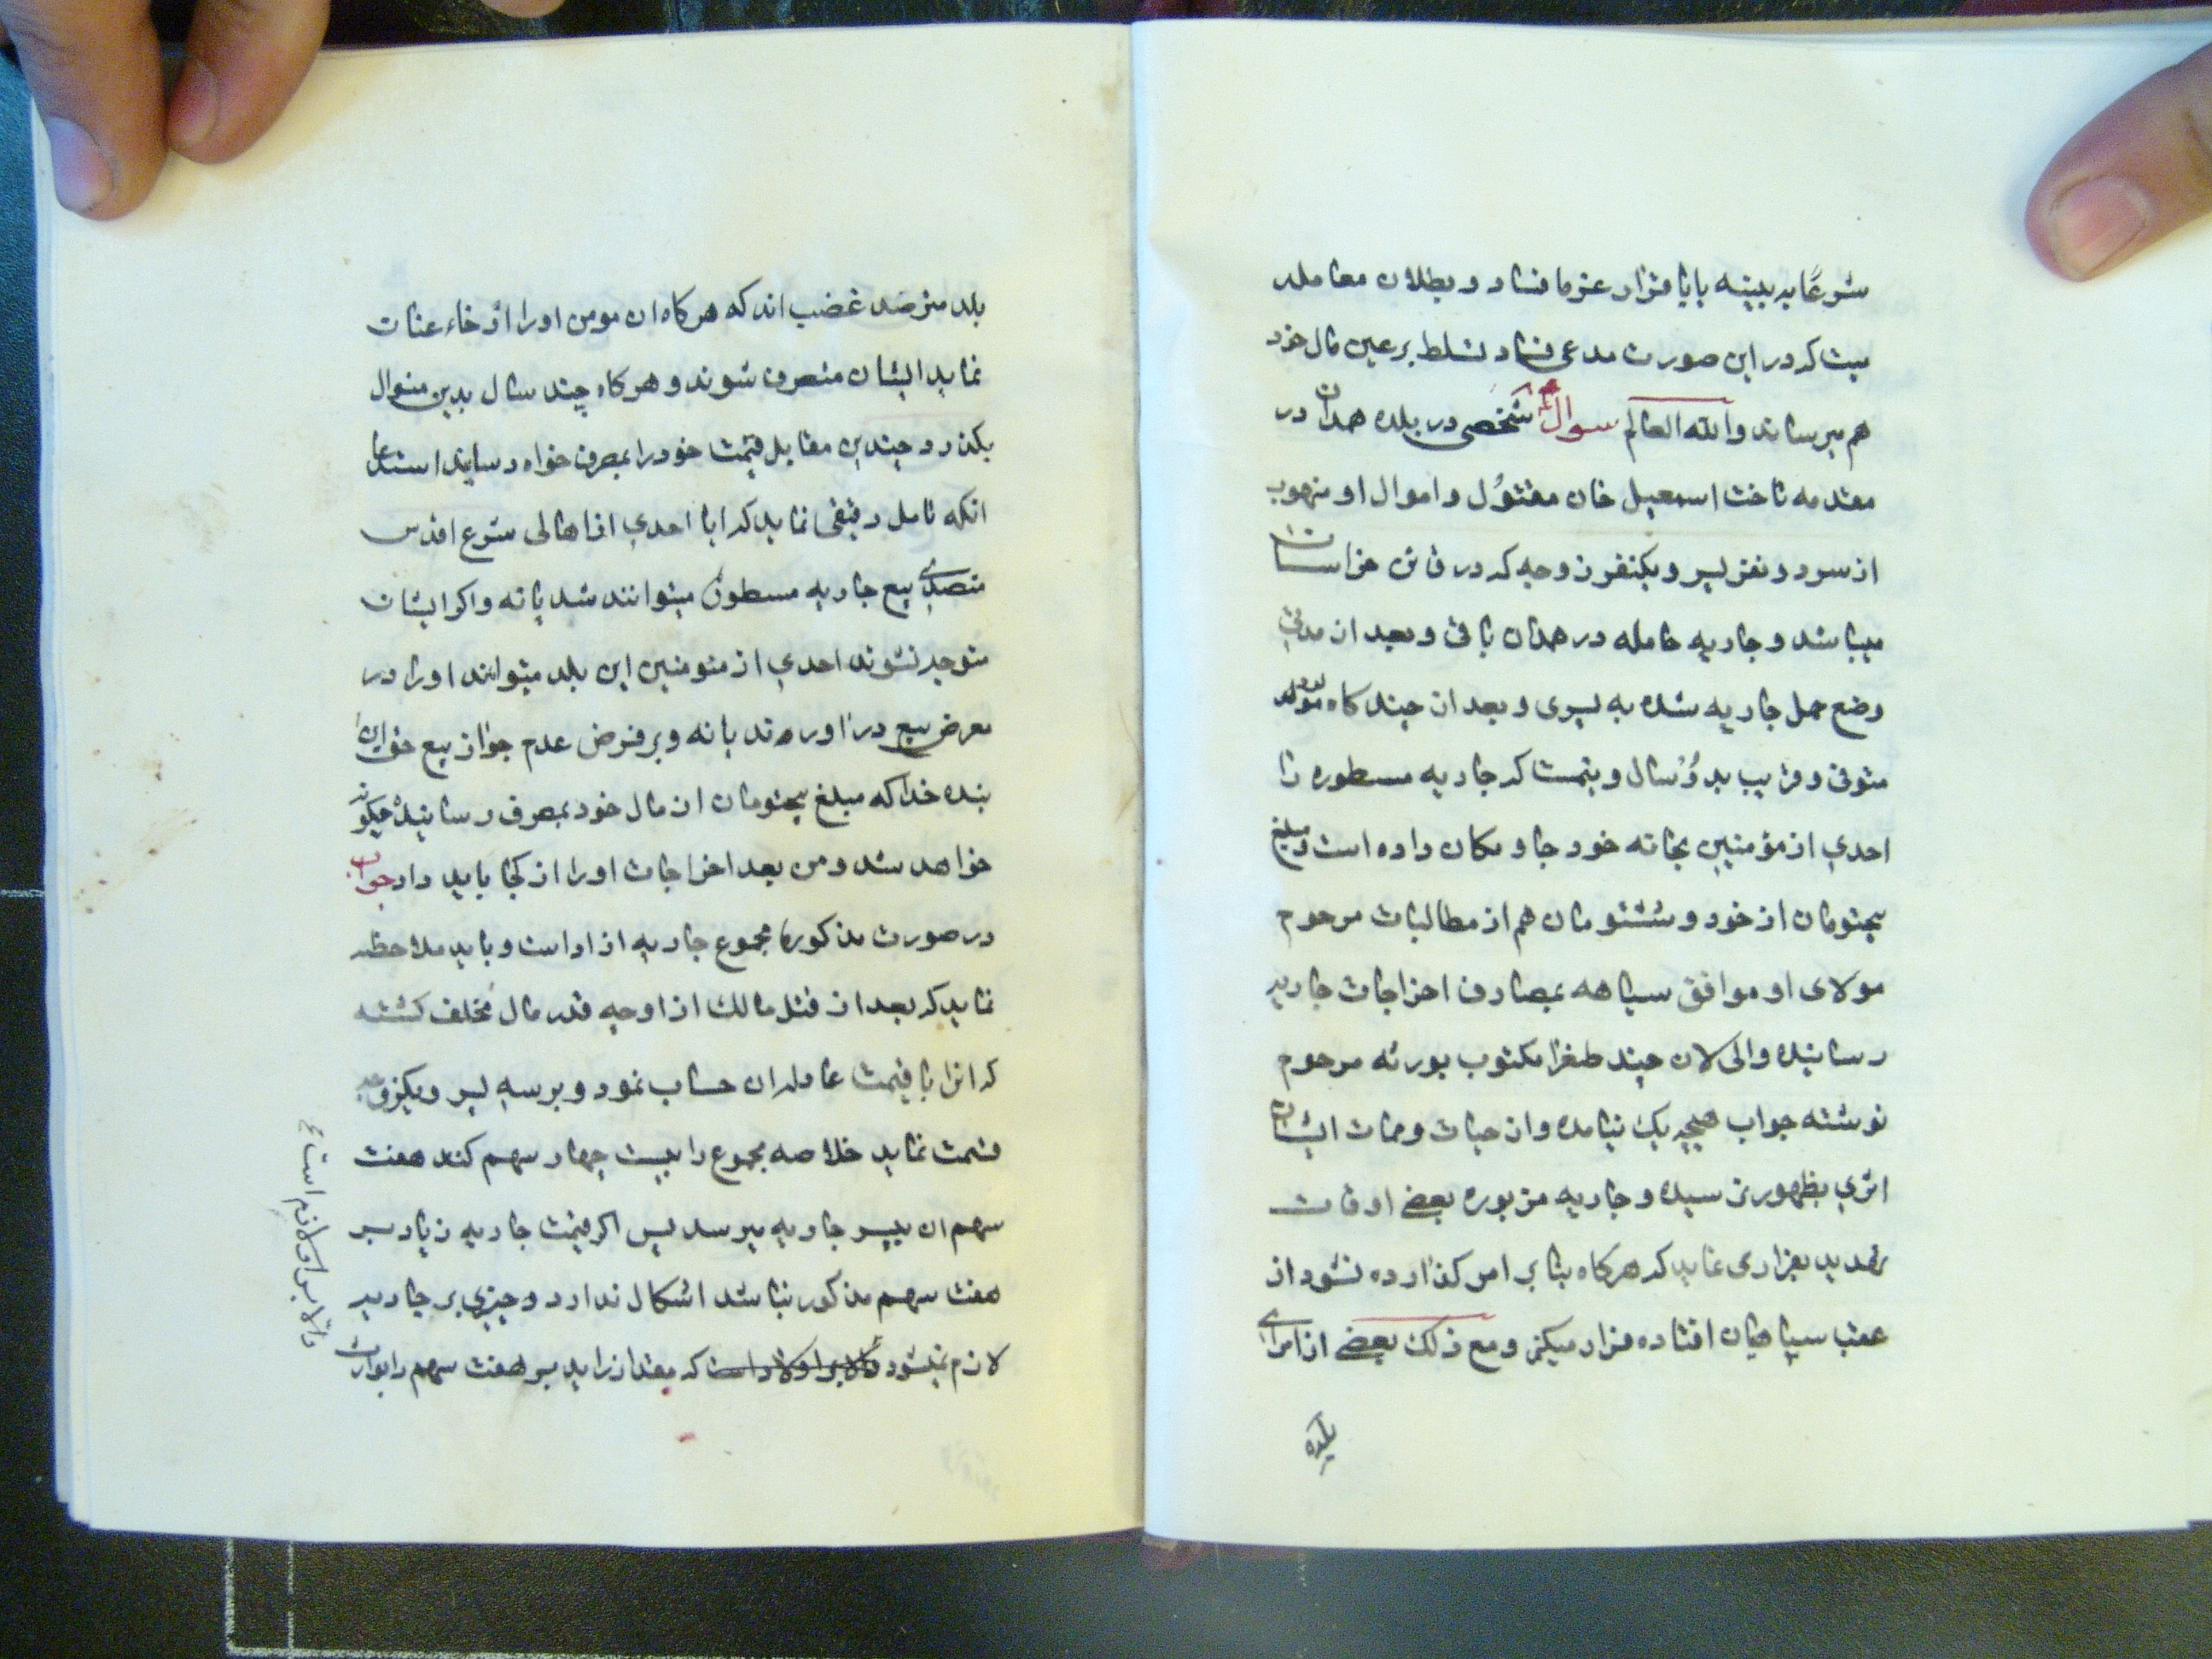 شرعًا به بینه یا باقرار غرما فساد و بطلان معامله
نیست که در این صورت مدعی فساد تسلط بر عین مال خود
هم میرساند والله العالم سوال شخصی در بلده همدان در
مقدمه تاخت اسمعیل خان مقتول و اموال او منهوب
از سر دو نفر پسر و یکنفر زوجه که در خراسان
میباشد و جاریه حامله در همدان باقی و بعد از مدتی
وضع حمل جاریه شده به پسری و بعد از چند کاه مولود
متوفی و قریب بدو سال و نیمست که جاریه مسطوره را
احدی از مؤمنین بخانه خود جا و مکان داده است و مبلغ
پنجتومان از خود و ششتومان هم از مطالبات مرحوم
مولای او موافق سیاهه بمصارف اخراجات جاریه
رسانیده والی لان چند طغرا مکتوب بورثه مرحوم
نوشته جواب هیچیک نیامده و از حیات و ممات ایشان
اثری بظهور نرسیده و جاریه مزبوره بعضی اوقات
تهدید بفراری نماید که هرکاه بنا بر امر کذارده نشود از
عقب سپاهیان افتاده فرار میکنم و مع ذلک بعضی از امرای
بلده
بلد مترصد غضب اند که هرکاه ان مومن اورا ارخاء عنان
نماید ایشان متصرف شوند و هرکاه چند سال بدین منوال
بکذرد چندین مقابل قیمت خود را بمصرف خواهد رسانید استدعا
انکه تامل دقیقی نماید که ایا احدی از اهالی شرع اقدس
متصدی بیع جاریه مسطوره میتوانند شد یا نه و اکر ایشان
متوجه نشوند احدی از مئومنین این بلد میتوانند اورا در
معرض بیع دراورند یا نه و بر فرض عدم جواز بیع این
بنده خدا که مبلغ پنجتومان از مال خود بمصرف رسانیده چکونه
خواهد شد و من بعد اخراجات اورا از کجا باید داد جواب
در صورت مذکوره مجموع جاریه ازاد است و باید ملاحظه
نماید که بعد از قتل مالک از او چه قدر مال مخلف کشته
که انرا با قیمت عادله ان حساب نمود و بر سه پسر و یکزوجه
قسمت نماید خلاصه مجموع را بیست چهار سهم کند هفت
سهم ان بپسر جاریه میرسد پس اکر قیمت جاریه زیاد بر
هفت سهم مذکور نباشد اشکال ندارد و چیزی بر جاریه
لازم نمیشود که مقدار زاید بر هفت سهم را بوارث
والا بر او لازم است